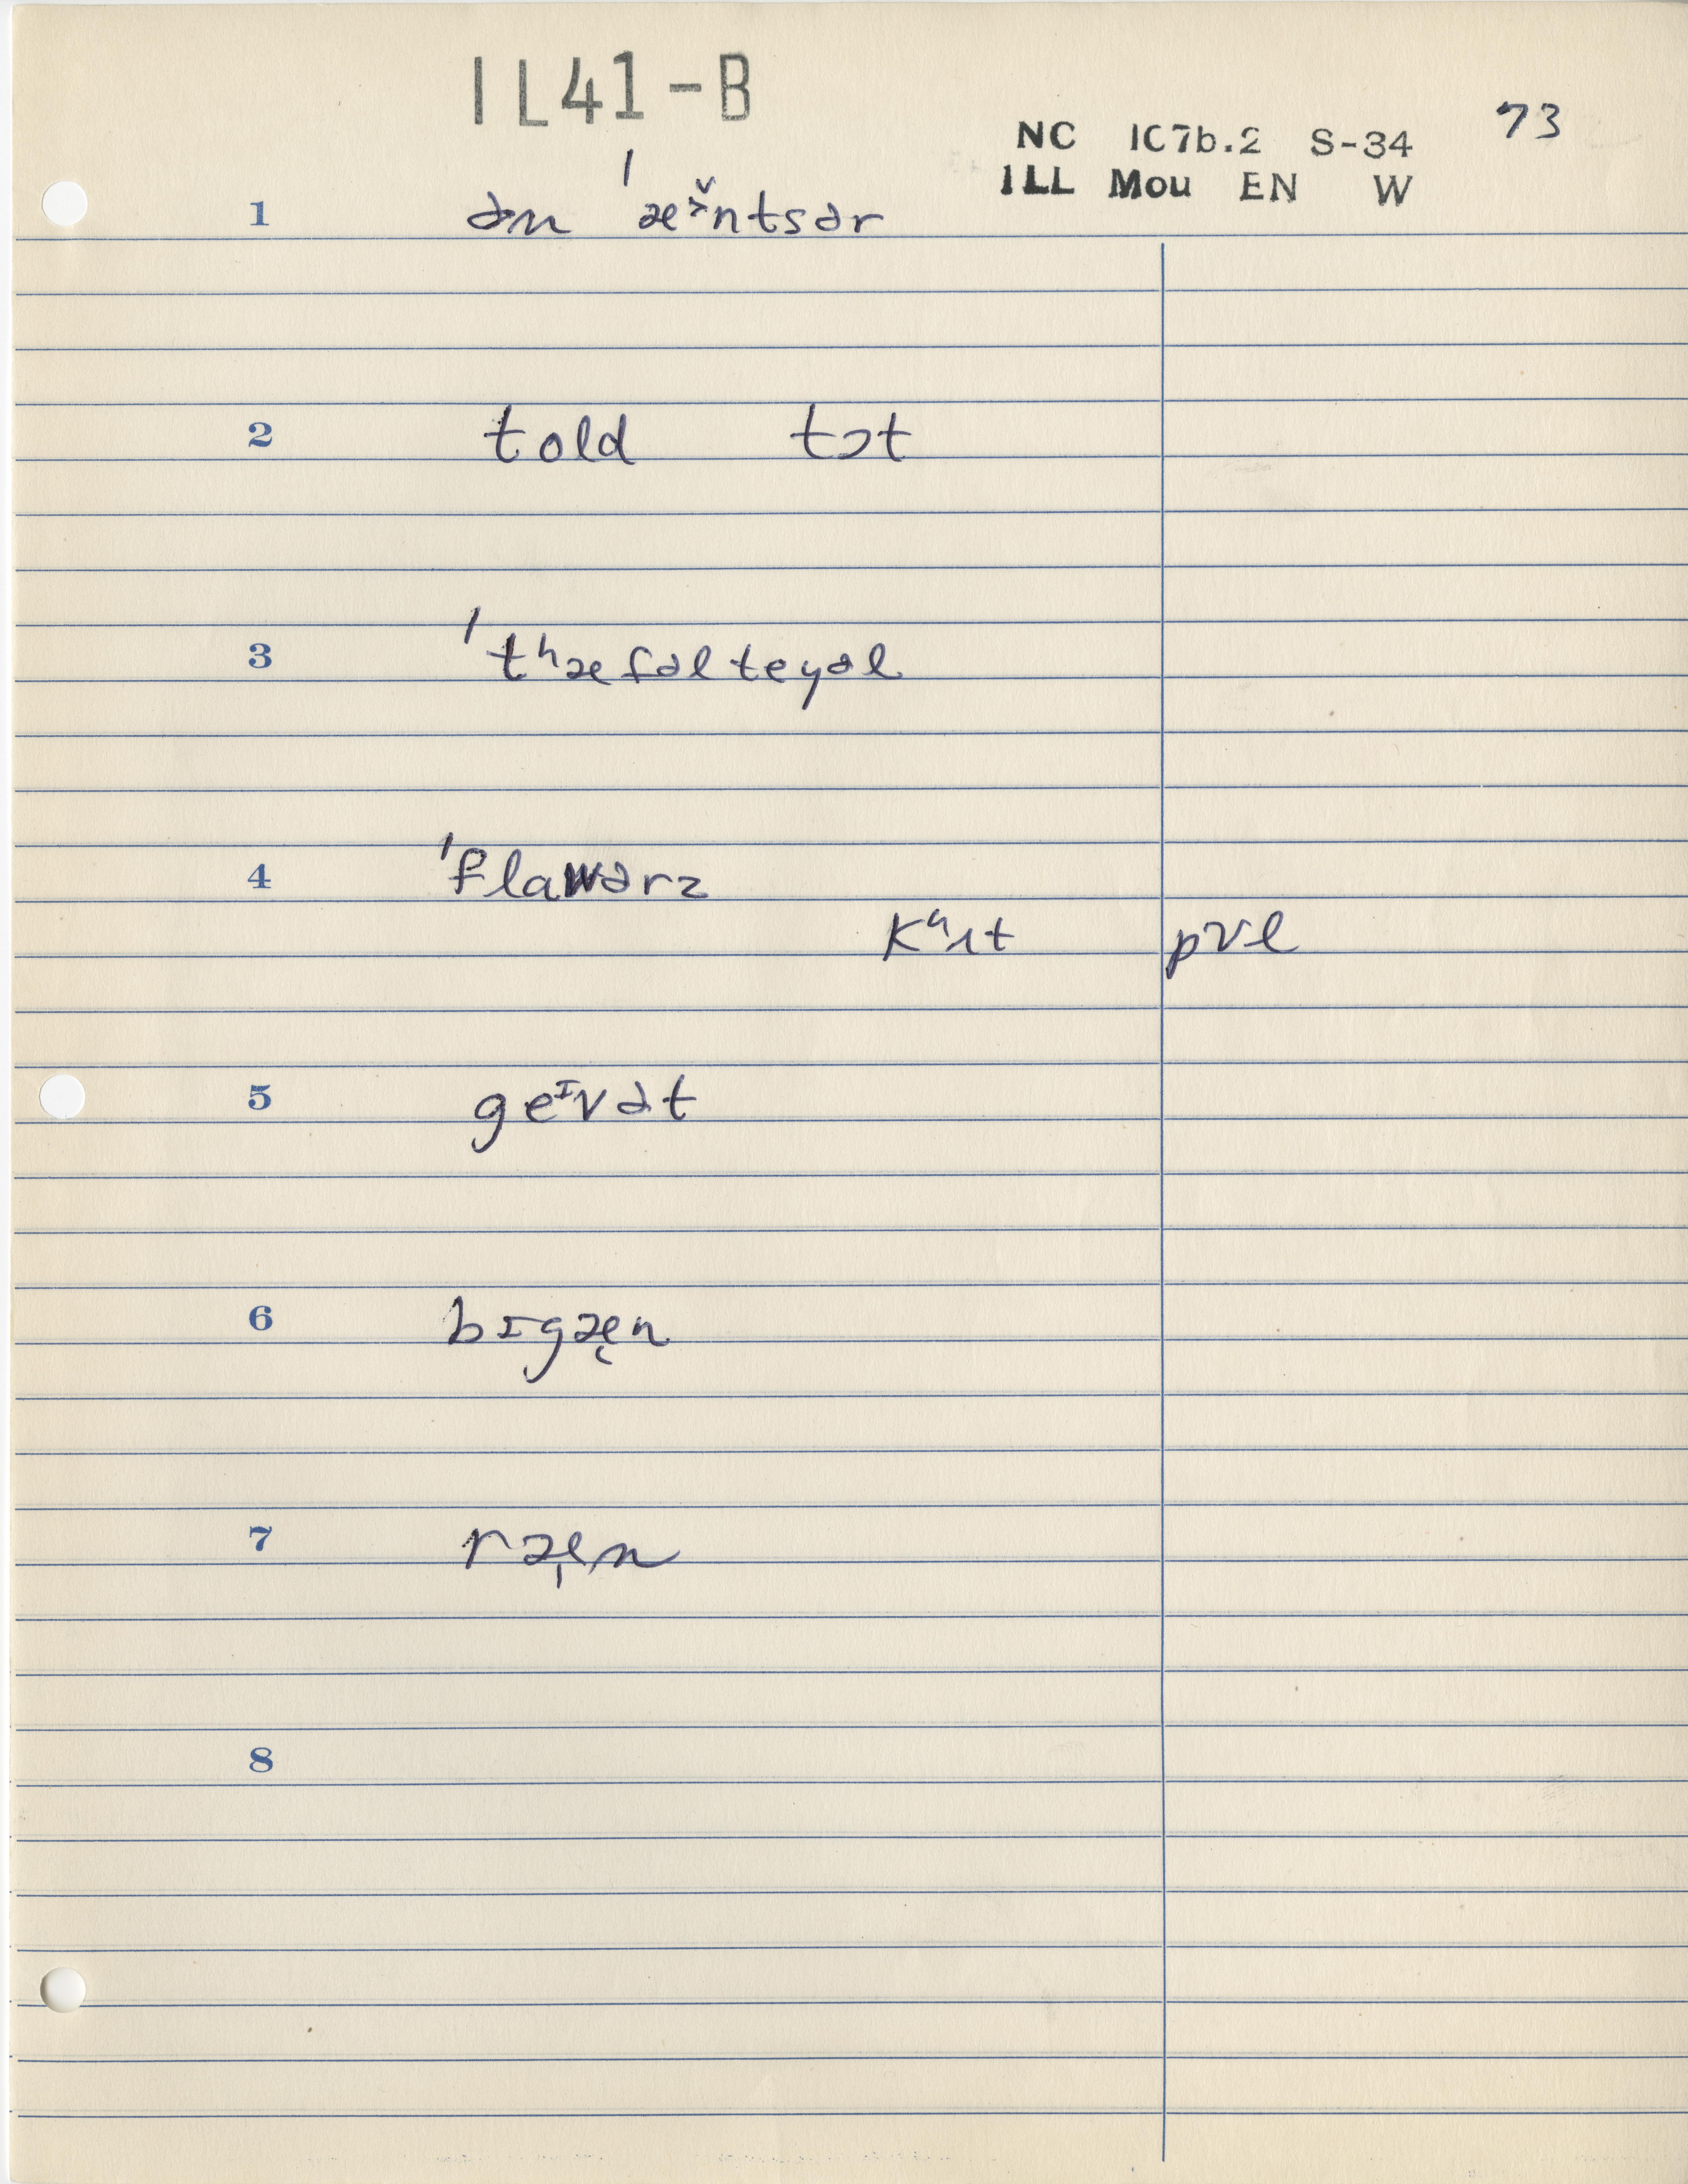 IL41-B
73
NC IC7b.2 S-34
ILL Mou EN W
1 ən ˈæ>̌ntsər
2 told tɔt
3 ˈtʰæfəlteyəl
4 ˈflawərz
kʰɪt pʊl
5 geᴵvət
6 bɪgæ̨n
7 ræ̩n
8